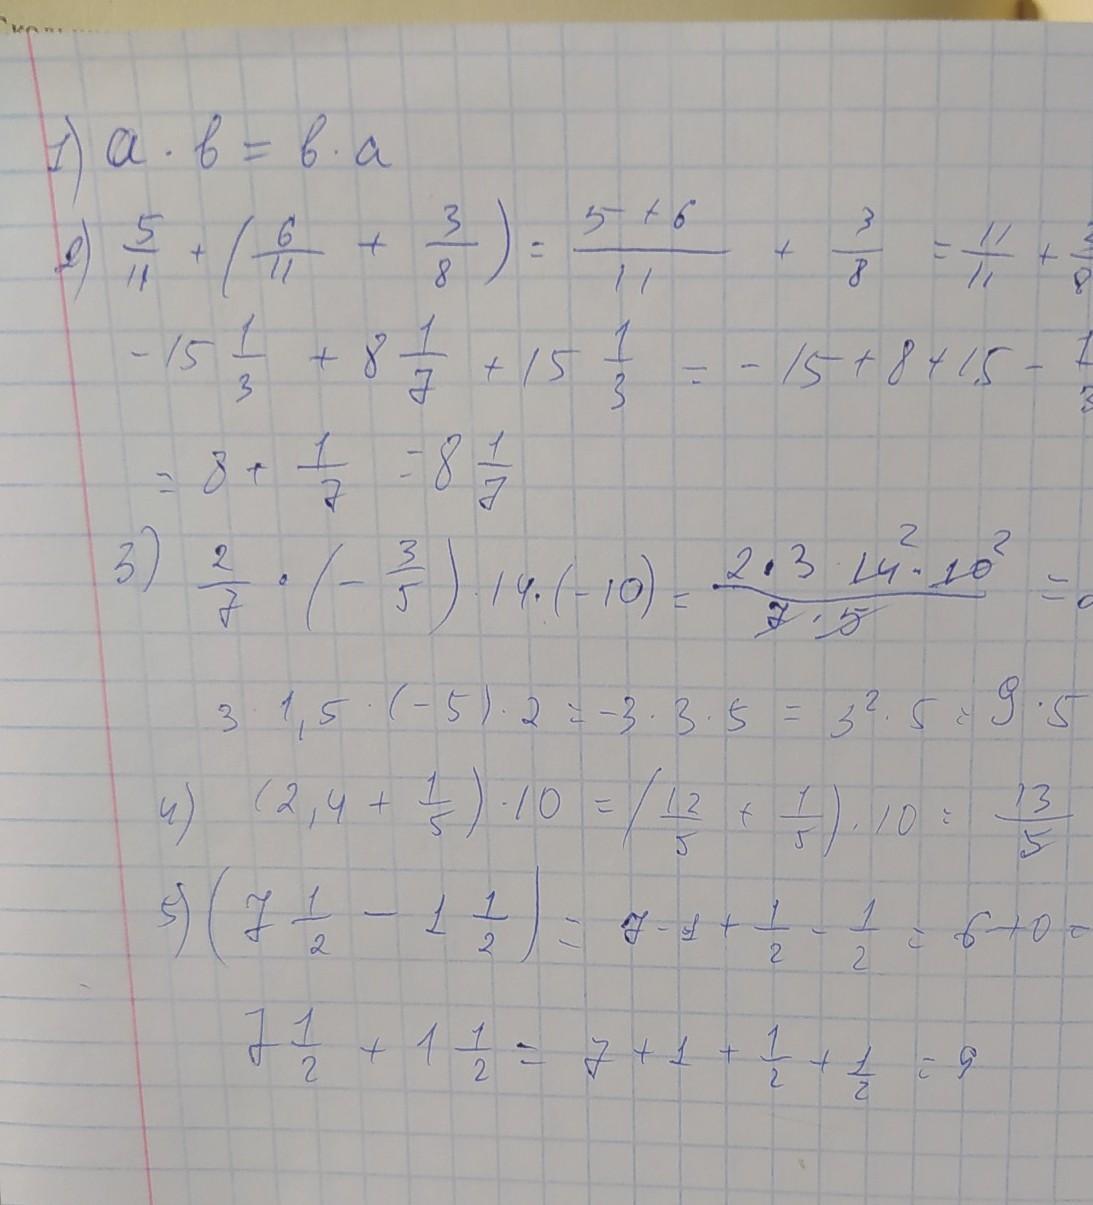 1) a · b = b · a
2) 5/11 + (6/11 + 3/8) = (5 + 6)/11 + 3/8 = 11/11 + 3/8
-15 1/3 + 8 1/7 + 15 1/3 = -15 + 8 + 15 - 1/3
= 8 + 1/7 = 8 1/7
3) 2/7 · (- 3/5) · 14 · (-10) = (2 · 3 · 14² · 10²)/(7 · 5) =
3 · 1,5 · (-5) · 2 = -3 · 3 · 5 = 3² · 5 = 9 · 5
4) (2,4 + 1/5) · 10 = (12/5 + 1/5) · 10 = 13/5
5) (7 1/2 - 1 1/2) = 7 - 1 + 1/2 - 1/2 = 6 + 0 =
7 1/2 + 1 1/2 = 7 + 1 + 1/2 + 1/2 = 9